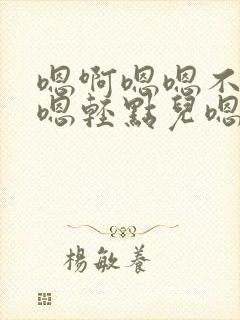 嗯啊嗯嗯不
嗯輕點兒嗯
楊敏養